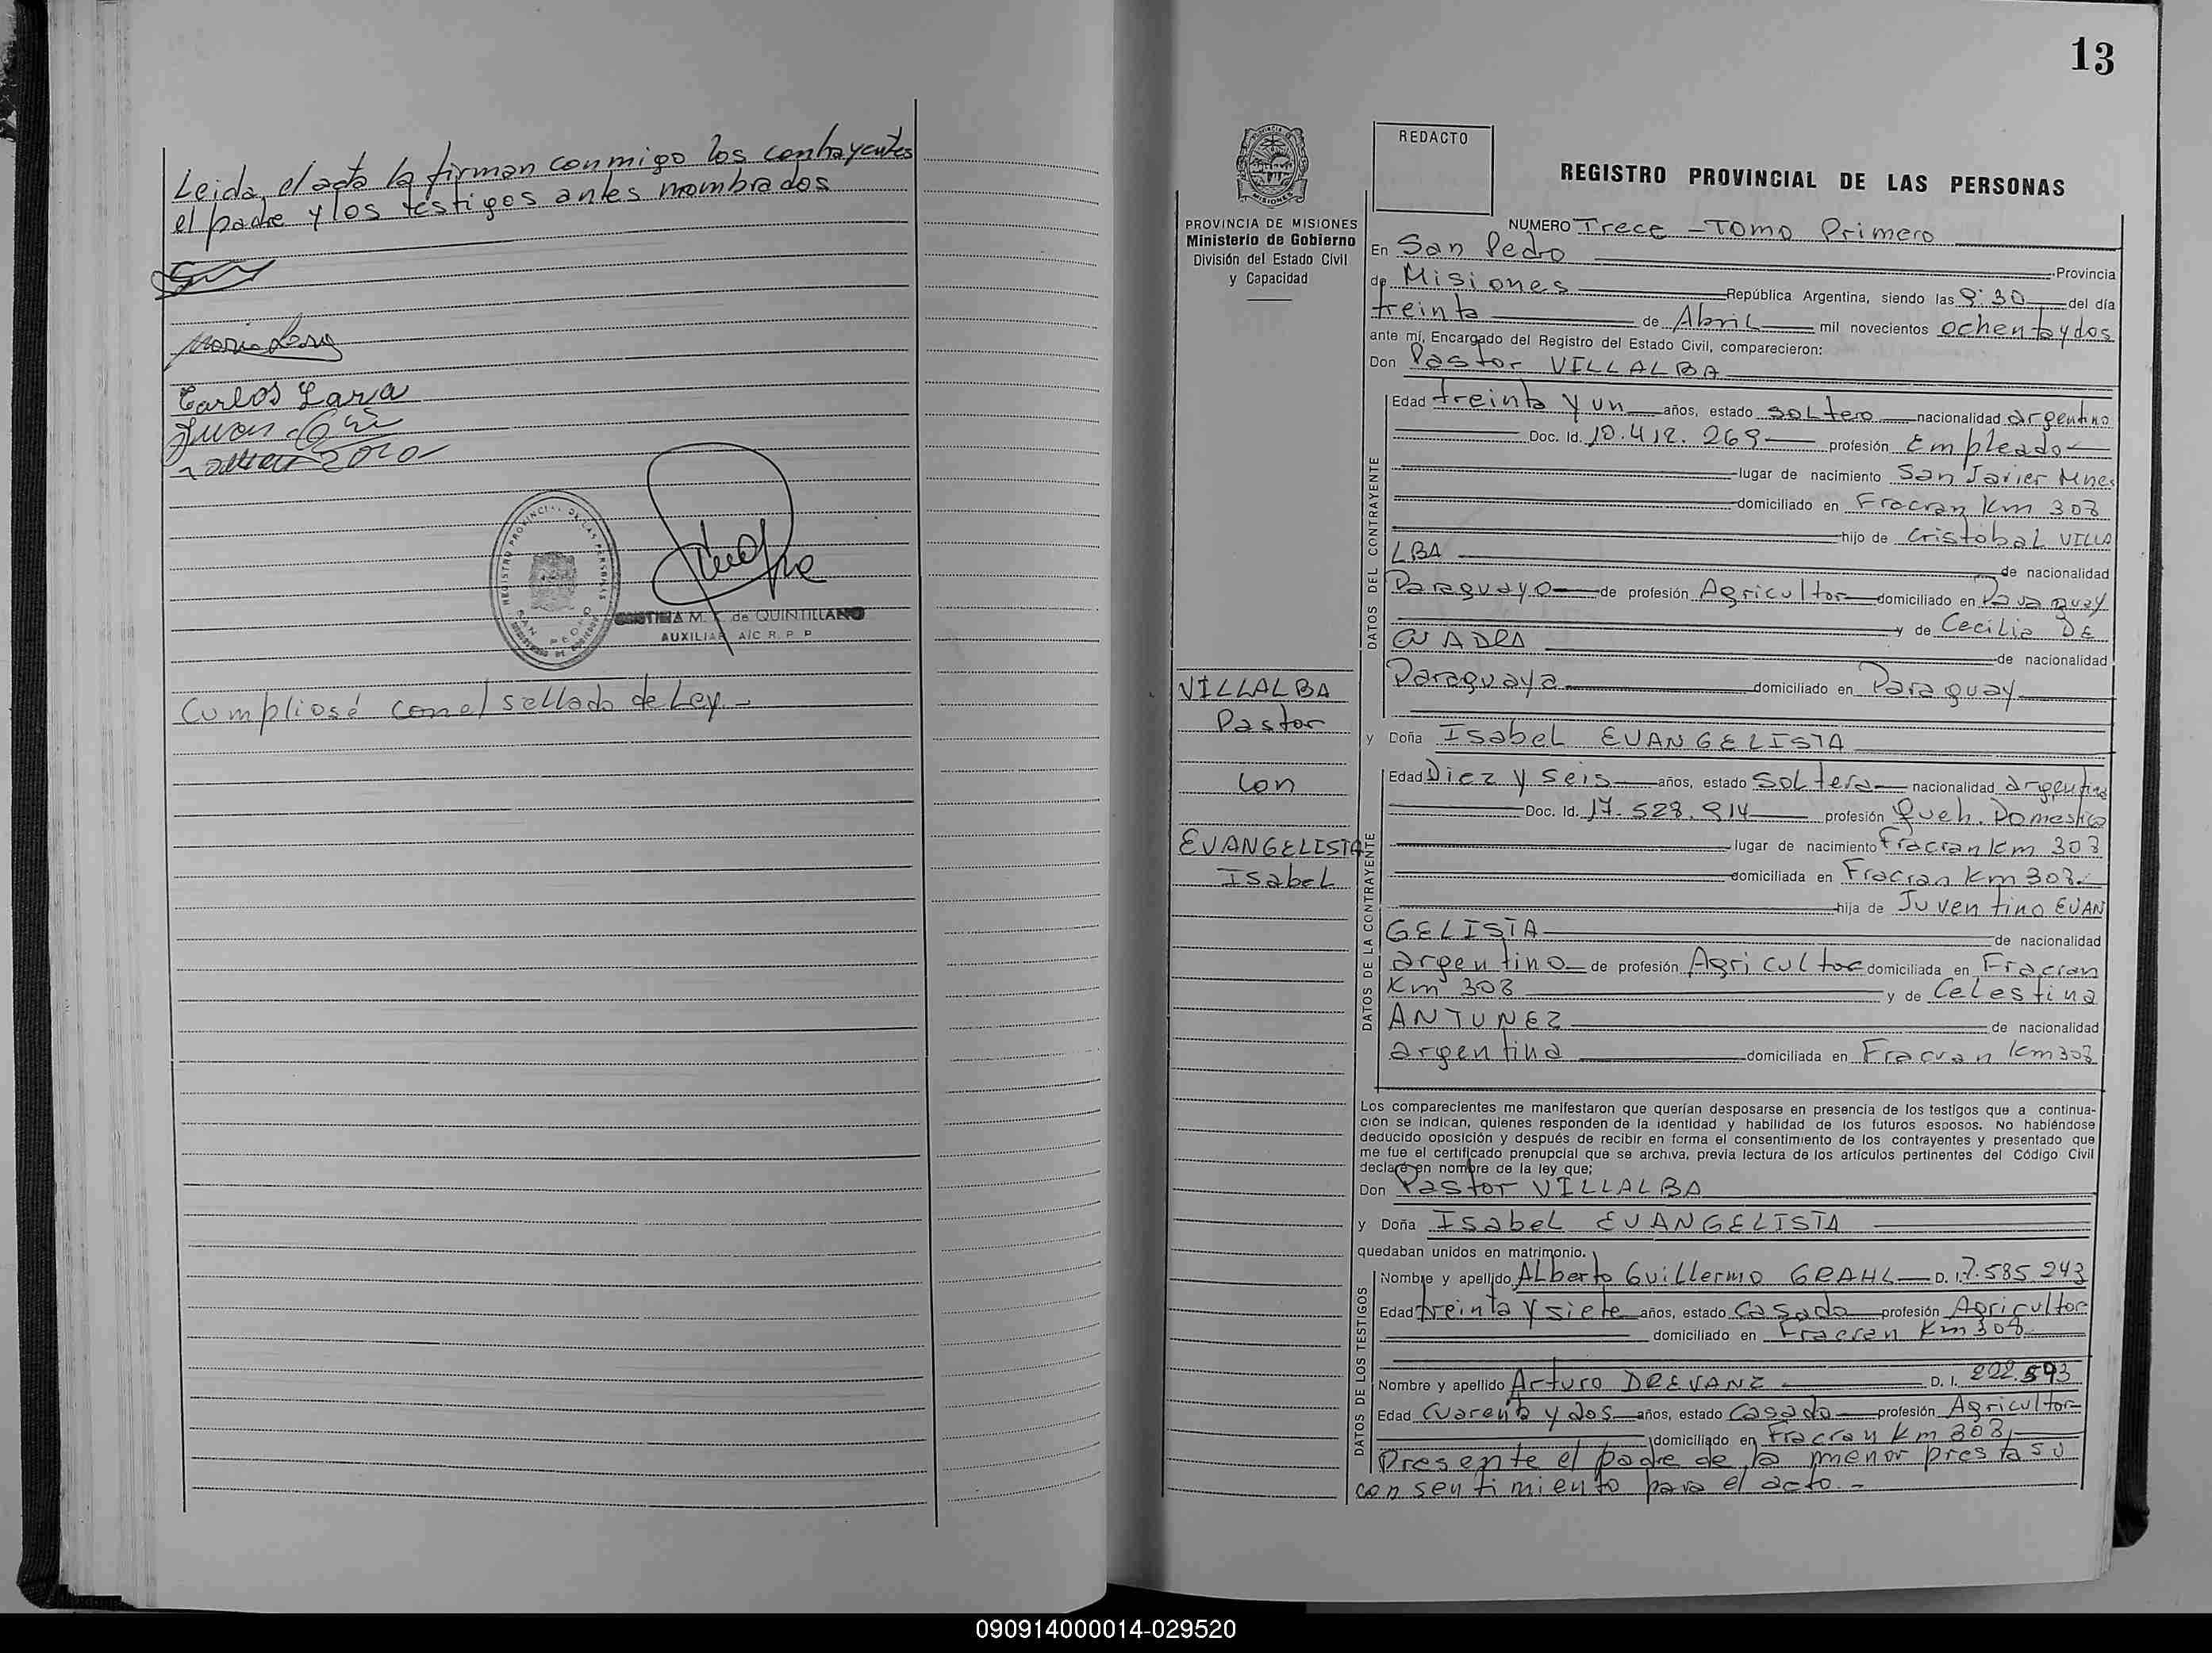 Leida el acta la firman conmigo los contrayentes
el padre y los testigos antes nombrados
Carlos Lara
Juan
REGISTRO PROVINCIAL DE LAS PERSONAS
SAN PEDRO
M. de QUINTILLANO
AUXILIAR A/C R. P. P
Cumpliose con el sellado de Ley.-
13
REDACTO
REGISTRO PROVINCIAL DE LAS PERSONAS
PROVINCIA DE MISIONES
Ministerio de Gobierno
División del Estado Civil
y Capacidad
VILLALBA
Pastor
con
EVANGELISTA
Isabel
NUMERO Trece - Tomo Primero
En San Pedro Provincia
de Misiones República Argentina, siendo las 9:30 del día
treinta de Abril mil novecientos ochenta y dos
ante mí, Encargado del Registro del Estado Civil, comparecieron:
Don Pastor VILLALBA
DATOS DEL CONTRAYENTE
Edad treinta y un años, estado soltero nacionalidad argentino
Doc. Id. 10.412.269 profesión Empleado
lugar de nacimiento San Javier Mnes
domiciliado en Fracran Km 308
hijo de Cristobal VILLA
LBA de nacionalidad
Paraguayo de profesión Agricultor domiciliado en Paraguay
y de Cecilia DE
de nacionalidad
Paraguaya domiciliado en Paraguay
y Doña Isabel EVANGELISTA
DATOS DE LA CONTRAYENTE
Edad Diez y seis años, estado Soltera nacionalidad argentina
Doc. Id. 17.528.914 profesión Queh. Domestico
lugar de nacimiento Fracran km 308
domiciliada en Fracran Km 308.
hija de Juventino EVAN
GELISTA de nacionalidad
argentino de profesión Agricultor domiciliada en Fracran
Km 308 y de Celestina
ANTUNEZ de nacionalidad
argentina domiciliada en Fracran km 308
Los comparecientes me manifestaron que querían desposarse en presencia de los testigos que a continua-
ción se indican, quienes responden de la identidad y habilidad de los futuros esposos. No habiéndose
deducido oposición y después de recibir en forma el consentimiento de los contrayentes y presentado que
me fue el certificado prenupcial que se archiva, previa lectura de los artículos pertinentes del Código Civil
declaré en nombre de la ley que;
Don Pastor VILLALBA
y Doña Isabel EVANGELISTA
quedaban unidos en matrimonio.
DATOS DE LOS TESTIGOS
Nombre y apellido Alberto Guillermo GRAHL D. I. 7.585.243
Edad treinta y siete años, estado Casado profesión Agricultor
domiciliado en Fracran Km 308
Nombre y apellido Arturo DREVANZ D. I. 222.593
Edad Cuarenta y dos años, estado Casado profesión Agricultor
domiciliado en Fracran Km 308
Presente el padre de la menor presta su
consentimiento para el acto.-
090914000014-029520